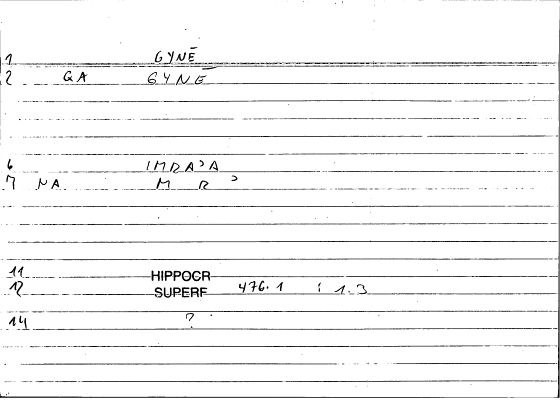 1 GYNĒ
2 QA GYNĒ
6 IMRAʾA
7 MA M R ʾ
11 HIPPOCR
12 SUPERF 476.1 : 1.3
14 ?